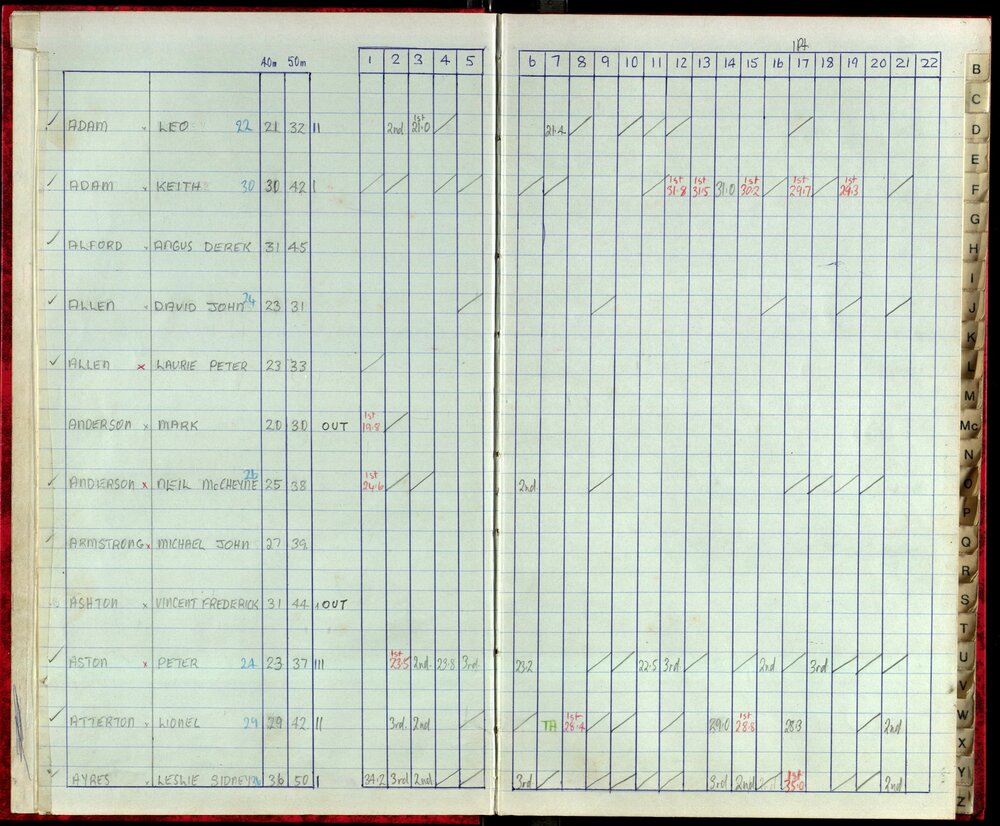 1Pt
40m 50m 1 2 3 4 5 6 7 8 9 10 11 12 13 14 15 16 17 18 19 20 21 22
ADAM LEO 22 21 32 II 2nd 1st 21.0 21.4
ADAM KEITH 30 30 42 I 1st 31.8 1st 31.5 31.0 1st 30.2 1st 29.7 1st 29.3
ALFORD ANGUS DEREK 31 45
ALLEN DAVID JOHN 24 23 31
ALLEN x LAURIE PETER 23 33
ANDERSON x MARK 20 30 OUT 1st 19.8
ANDERSON x NEIL McCHEYNE 26 25 38 1st 24.6 2nd
ARMSTRONG x MICHAEL JOHN 27 39
ASHTON x VINCENT FREDERICK 31 44 I OUT
ASTON x PETER 24 23 37 III 1st 23.5 2nd 23.8 3rd 23.2 22.5 3rd 2nd 3rd
ATTERTON x LIONEL 29 29 42 II 3rd 2nd TA 1st 28.4 29.0 1st 28.8 28.3 2nd
AYRES LESLIE SIDNEY 36 50 I 34.2 3rd 2nd 3rd 3rd 2nd 1st 35.0 2nd
B
C
D
E
F
G
H
I
J
K
L
M
Mc
N
O
P
Q
R
S
T
U
V
W
X
Y
Z